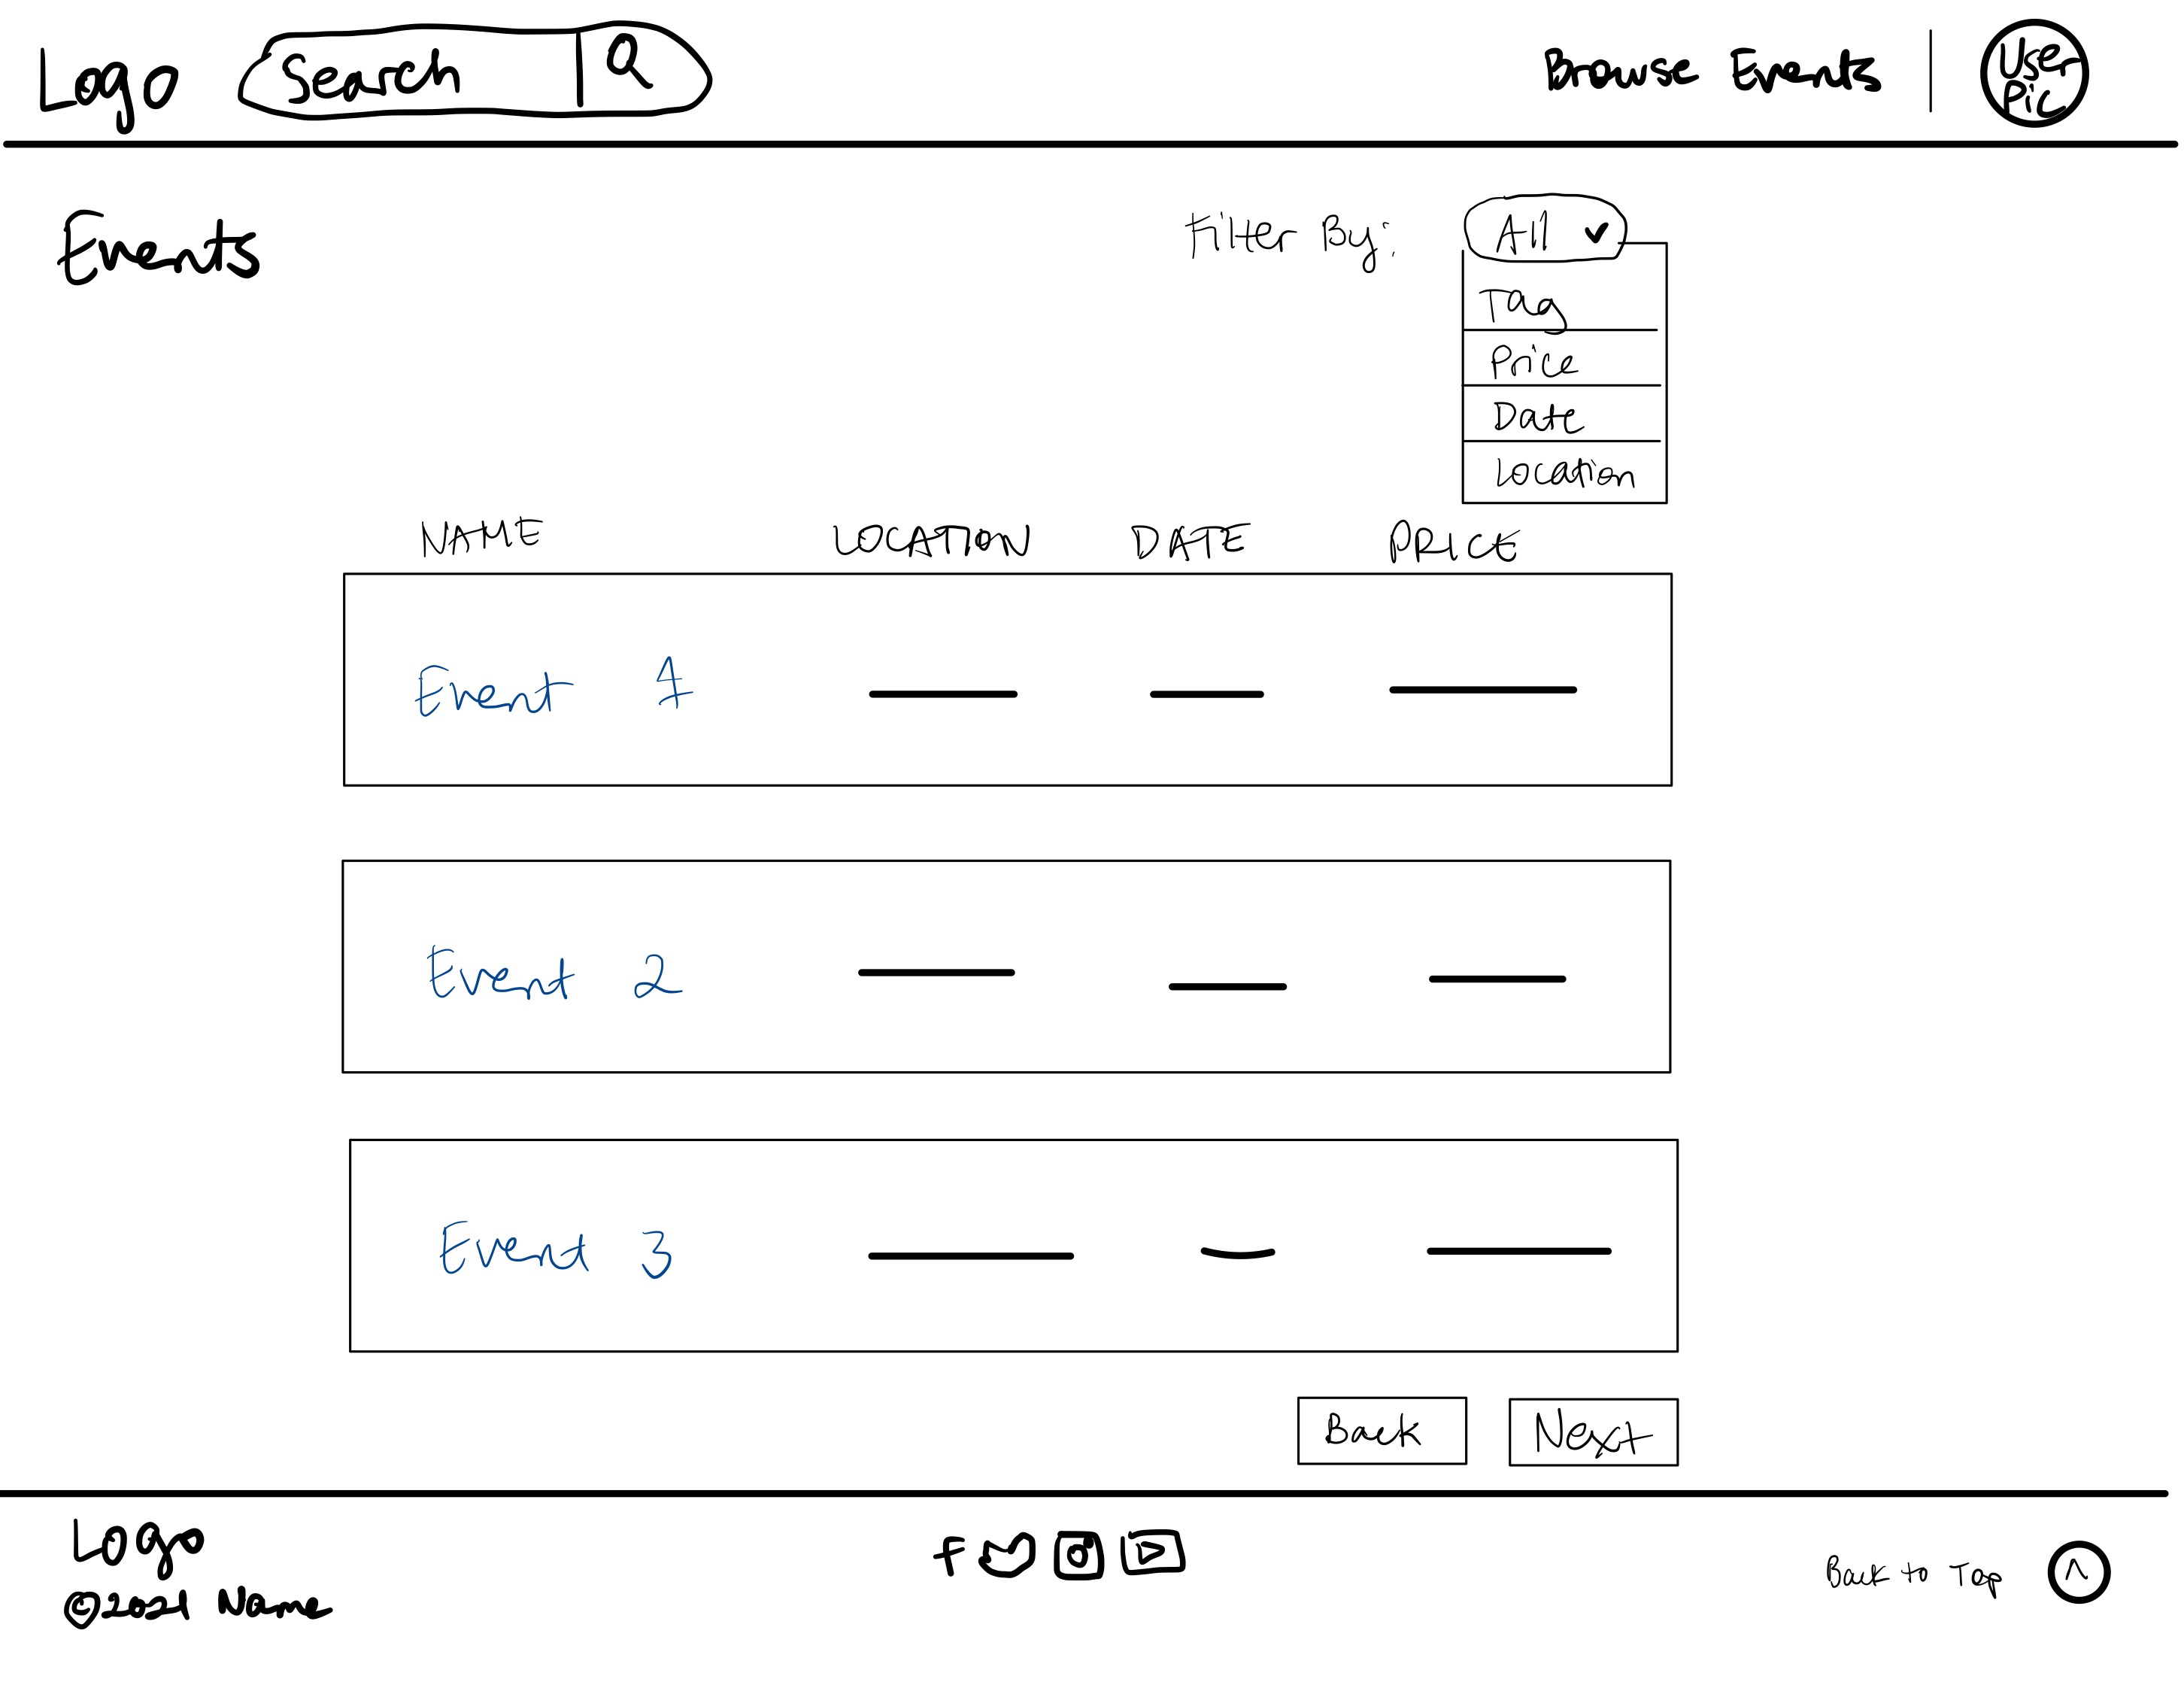 Logo Search Browse Events User Pic
Events Filter By: All
Tag
Price
Date
Location
NAME LOCATION DATE PRICE
Event 1
Event 2
Event 3
Back Next
Logo
@2021 Name
Back to Top